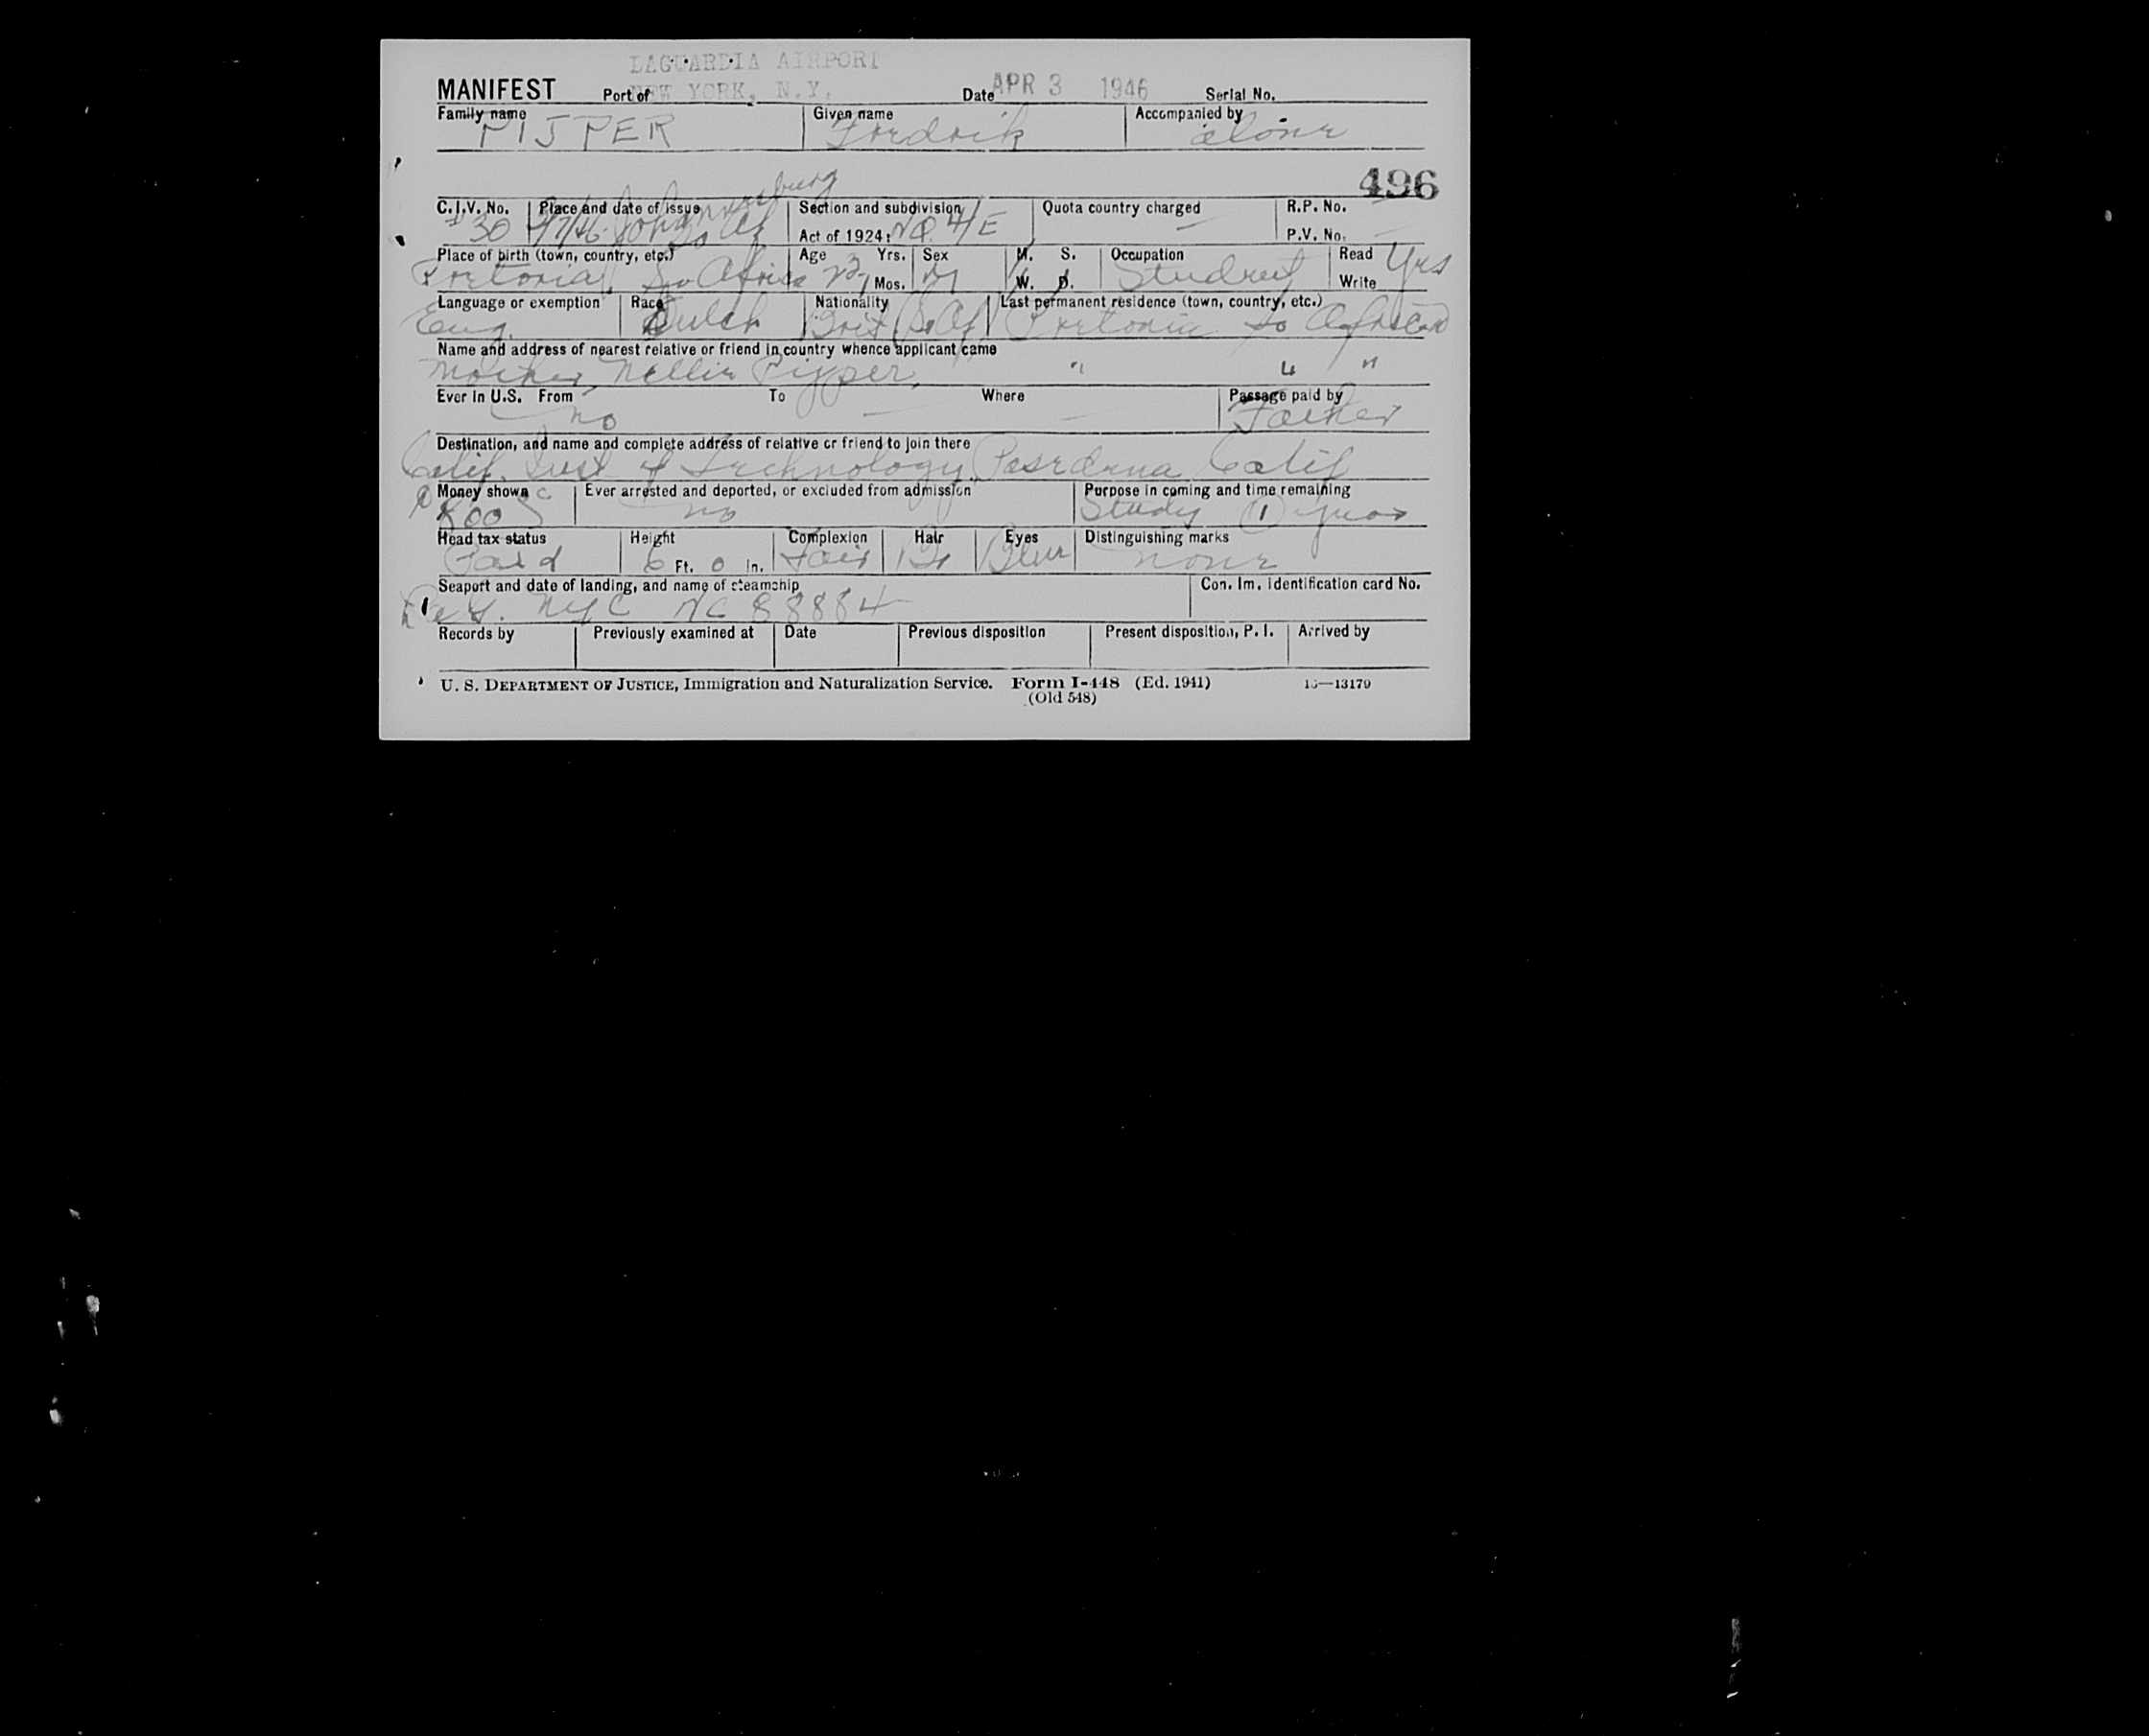 LAGUARDIA AIRPORT
MANIFEST Port of NEW YORK, N.Y. Date APR 3 1946 Serial No.
Family name Given name Accompanied by
PIJPER Fredrik alone
496
C.I.V. No. Place and date of issue Section and subdivision Quota country charged R.P. No.
30 Johannesburg So Af Act of 1924: NQ 4/E — P.V. No. —
Place of birth (town, country, etc.) Age Yrs. Sex M. S. Occupation Read Yes
Pretoria, So Africa 23 Mos. M W. D. Student Write
Language or exemption Race Nationality Last permanent residence (town, country, etc.)
Eng. Dutch Brit (S. Af) Pretoria So Africa
Name and address of nearest relative or friend in country whence applicant came
Mother, Nellie Pijper, " " "
Ever in U.S. From To Where Passage paid by
no — — Father
Destination, and name and complete address of relative or friend to join there
Calif. Inst of Technology, Pasadena Calif
Money shown Ever arrested and deported, or excluded from admission Purpose in coming and time remaining
800 no Study 1 year
Head tax status Height Complexion Hair Eyes Distinguishing marks
Paid 6 Ft. 0 In. Fair Br Blue none
Seaport and date of landing, and name of steamship Con. Im. identification card No.
NYC NC 88884
Records by Previously examined at Date Previous disposition Present disposition, P. I. Arrived by
U. S. DEPARTMENT OF JUSTICE, Immigration and Naturalization Service. Form I-448 (Ed. 1941) 16—13179
(Old 548)